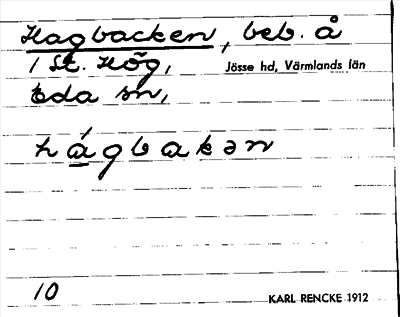 Hagbacken, beb. å
1 St. Hög,
Jösse hd, Värmlands län
Eda sn,
hágbakən
10
KARL RENCKE 1912